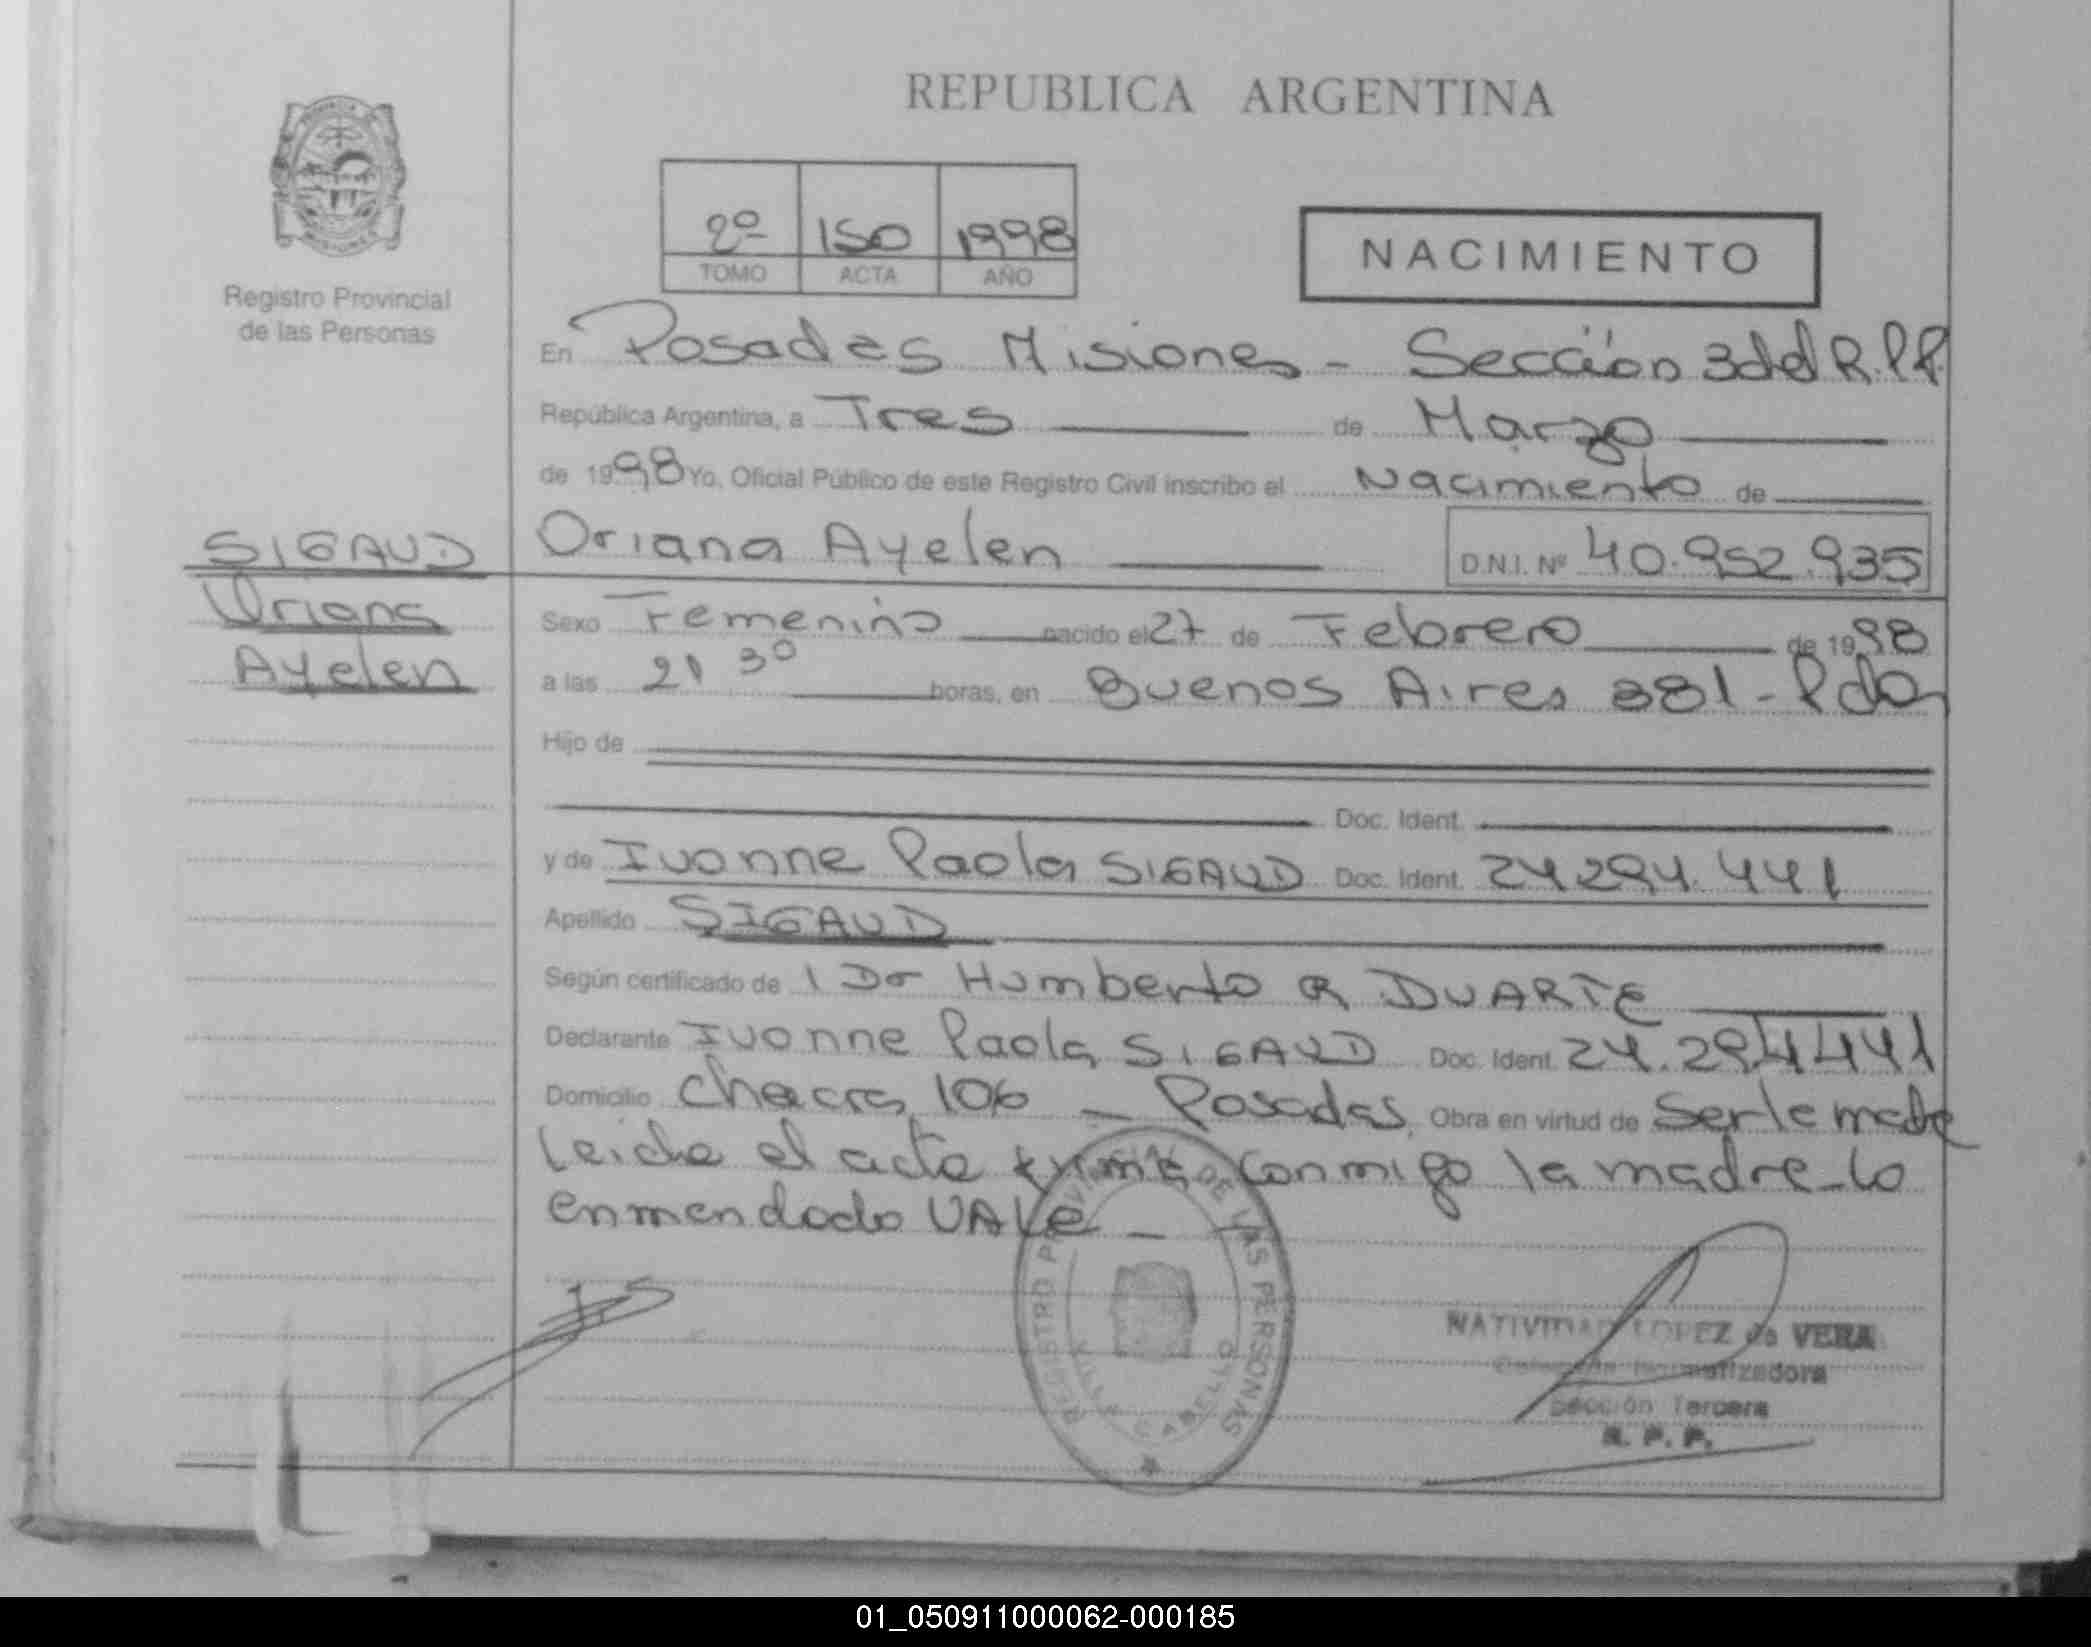 REPUBLICA ARGENTINA
2º 150 1998
TOMO ACTA AÑO
NACIMIENTO
Registro Provincial
de las Personas
En Posadas Misiones - Sección 3 del R.P.P.
República Argentina, a Tres de Marzo
de 1998 Yo, Oficial Público de este Registro Civil inscribo el Nacimiento de
SIGAUD
Oriana
Ayelen
Oriana Ayelen D.N.I. Nº 40.952.935
Sexo Femenino nacido el 27 de Febrero de 1998
a las 21 30 horas, en Buenos Aires 881 - Pdas
Hijo de
Doc. Ident.
y de Ivonne Paola SIGAUD Doc. Ident. 24294.441
Apellido SIGAUD
Según certificado de 1 Dr Humberto R DUARTE
Declarante Ivonne Paola SIGAUD Doc. Ident. 24.294441
Domicilio Chacra 106 - Posadas, Obra en virtud de Ser le madre
leida el acta firma conmigo la madre - lo
enmendado VALE -
REGISTRO PROVINCIAL DE LAS PERSONAS
NATIVIDAD LOPEZ de VERA
Sección Tercera
R. P. P.
01_050911000062-000185